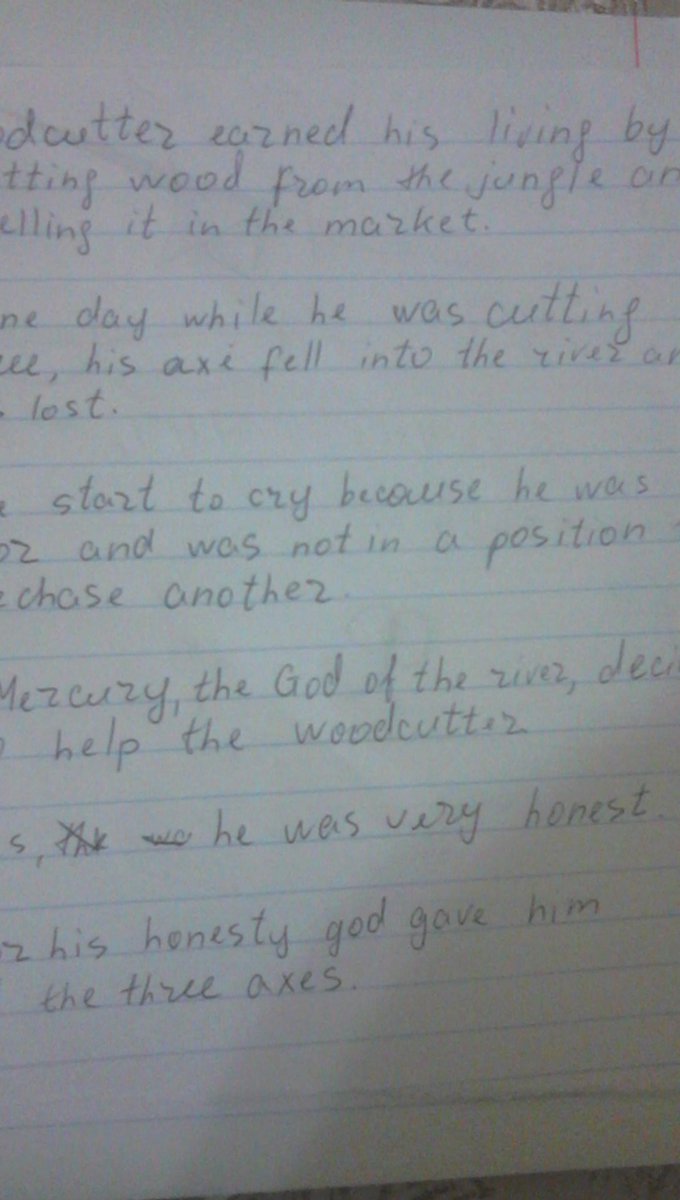 odcutter earned his living by
tting wood from the jungle an
elling it in the market.
ne day while he was cutting
ee, his axe fell into the river an
lost.
e start to cry because he was
or and was not in a position
chase another.
Mercury, the God of the river, deci
o help the woodcutter
s, he was very honest.
or his honesty god gave him
the three axes.